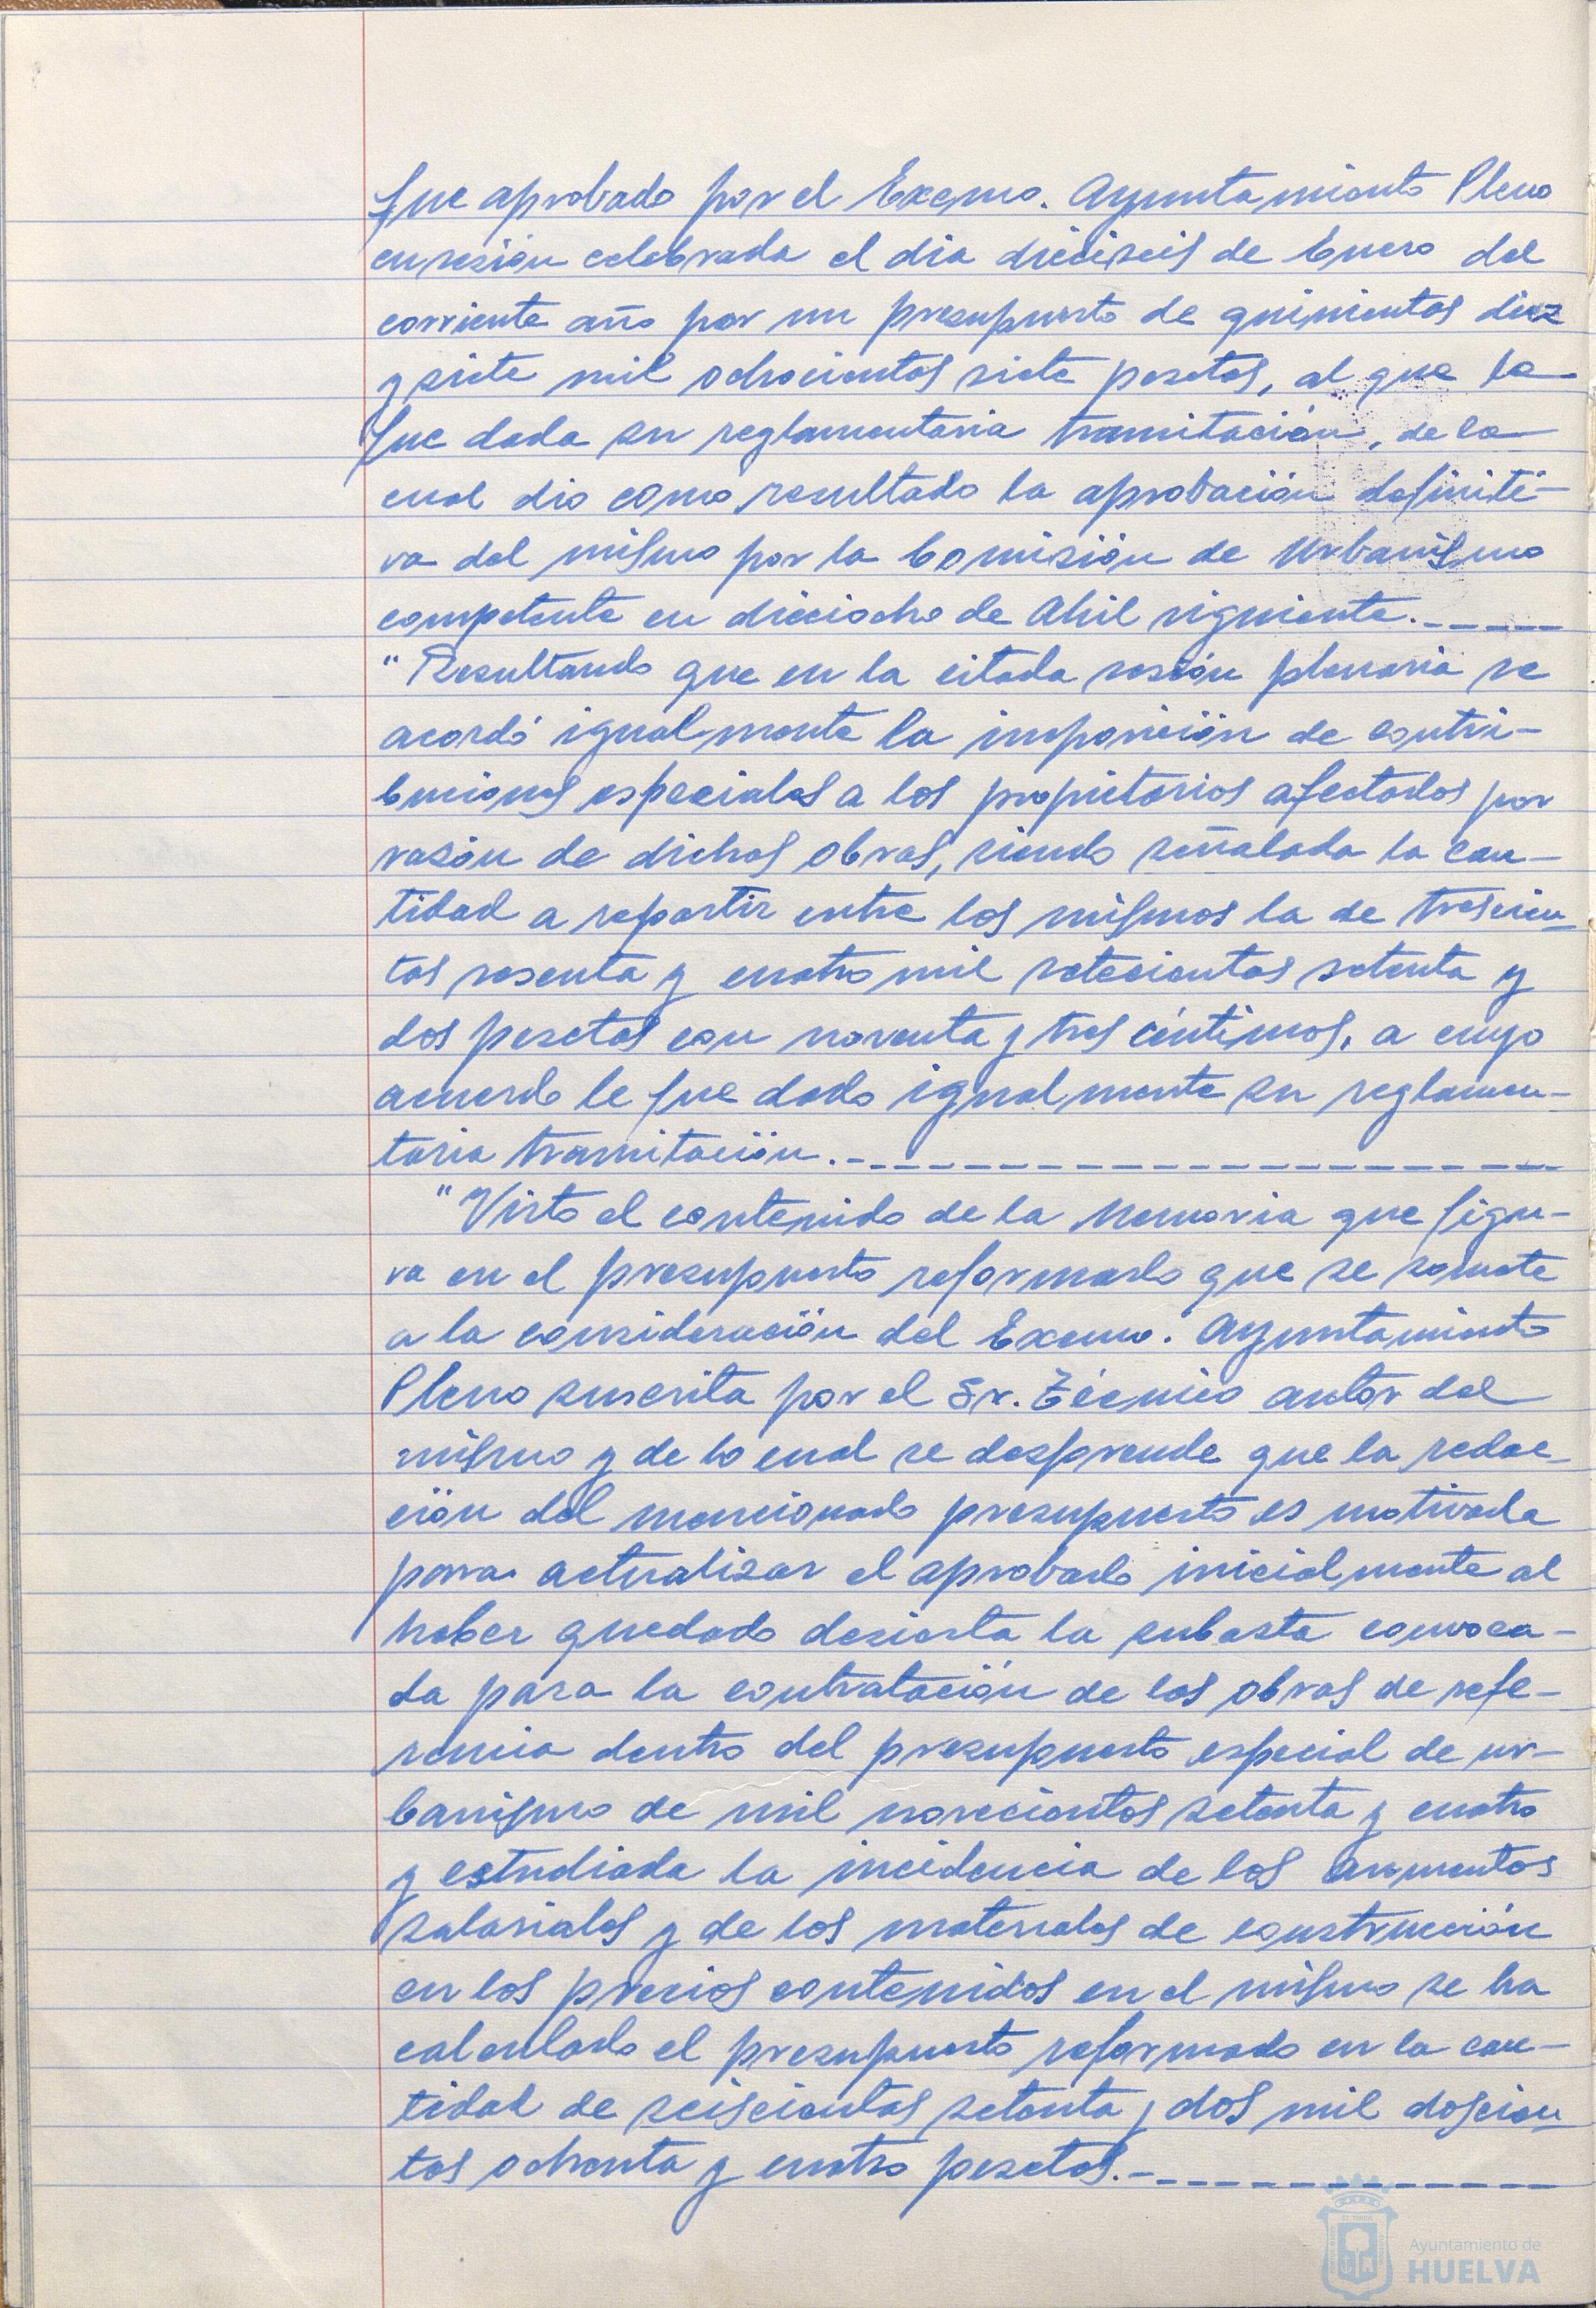 fue aprobado por el Excmo. Ayuntamiento Pleno
en sesión celebrada el dia dieciseis de Enero del
corriente año por un presupuesto de quinientas diez
y siete mil ochocientas siete pesetas, al que le
fue dada su reglamentaria tramitación, de la
cual dio como resultado la aprobación definiti-
va del mismo por la Comisión de Urbanismo
competente en dieciocho de Abril siguiente.-----
"Resultando que en la citada sesión plenaria se
acordó igualmente la imposición de contri-
buciones especiales a los propietarios afectados por
razón de dichas obras, siendo señalada la can-
tidad a repartir entre los mismos la de trescien-
tas sesenta y cuatro mil setecientas setenta y
dos pesetas con noventa y tres céntimos, a cuyo
acuerdo le fue dado igualmente su reglamen-
taria tramitación.--------------------
"Visto el contenido de la Memoria que figu-
ra en el presupuesto reformado que se somete
a la consideración del Excmo. Ayuntamiento
Pleno suscrita por el Sr. Técnico autor del
mismo y de lo cual se desprende que la redac-
ción del mencionado presupuesto es motivada
para actualizar el aprobado inicialmente al
haber quedado desierta la subasta convoca-
da para la contratación de las obras de refe-
rencia dentro del presupuesto especial de ur-
banismo de mil novecientos setenta y cuatro
y estudiada la incidencia de los aumentos
salariales y de los materiales de construcción
en los precios contenidos en el mismo se ha
calculado el presupuesto reformado en la can-
tidad de seiscientas setenta y dos mil doscien-
tas ochenta y cuatro pesetas.------------
Ayuntamiento de
HUELVA